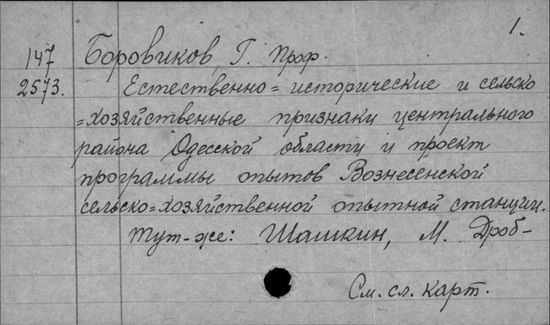 1.
147
2573.
Боровиков Г. Проф.
Естественно=исторические и сельско
=хозяйственные признаки центрального
района Одесской области и проект
программы опытов Вознесенской
сельско=хозяйственной опытной станции.
Тут-же: Шашкин, М. Дроб-
См. сл. карт.